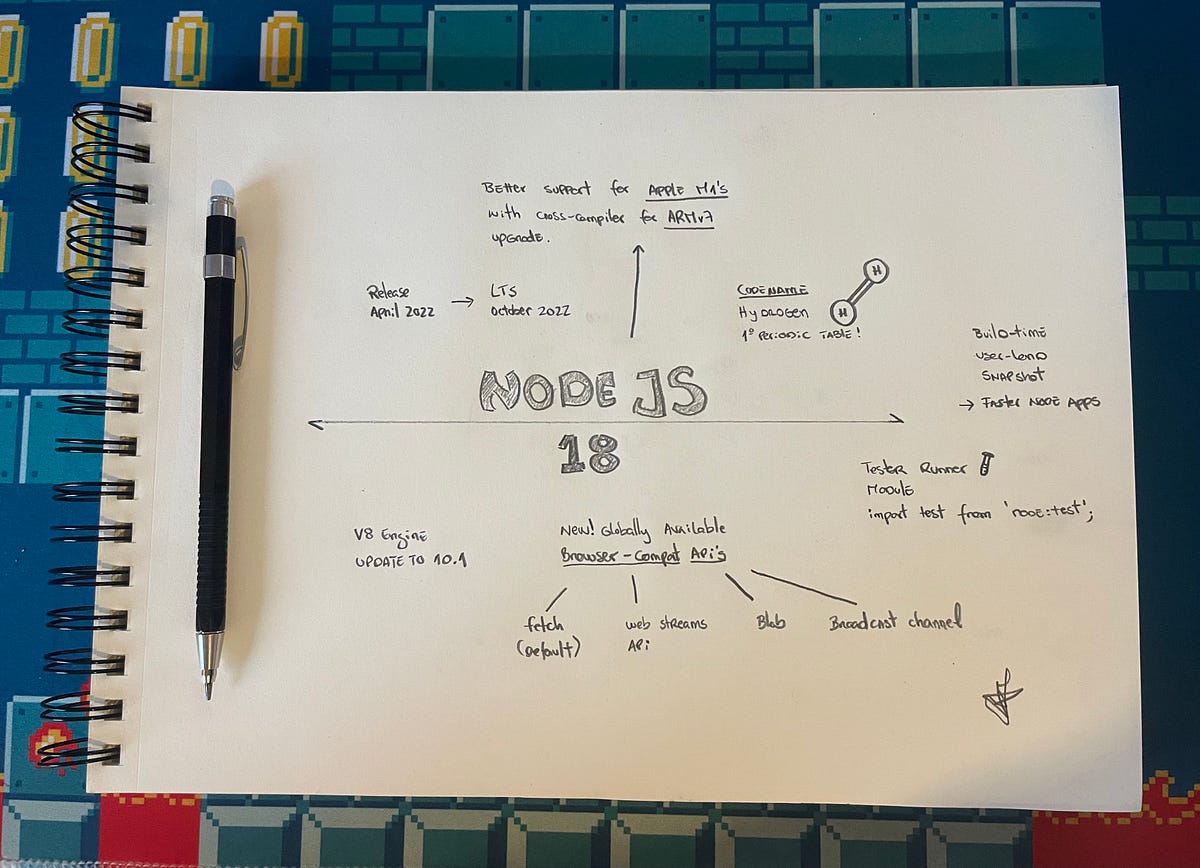 Better support for Apple M1's
with cross-compiler for ARMv7
upgrade.
Release
April 2022
→ LTS
October 2022
CODENAME
Hydrogen
1º Periodic TABLE!
H
H
Build-time
user-land
SNAPshot
→ Faster NODE APPS
NODE JS
18
Tester Runner
Module
import test from 'node:test';
V8 Engine
UPDATE TO 10.1
New! Globally Available
Browser-Compat APi's
fetch
(Default)
web streams
APi
Blob
Broadcast channel